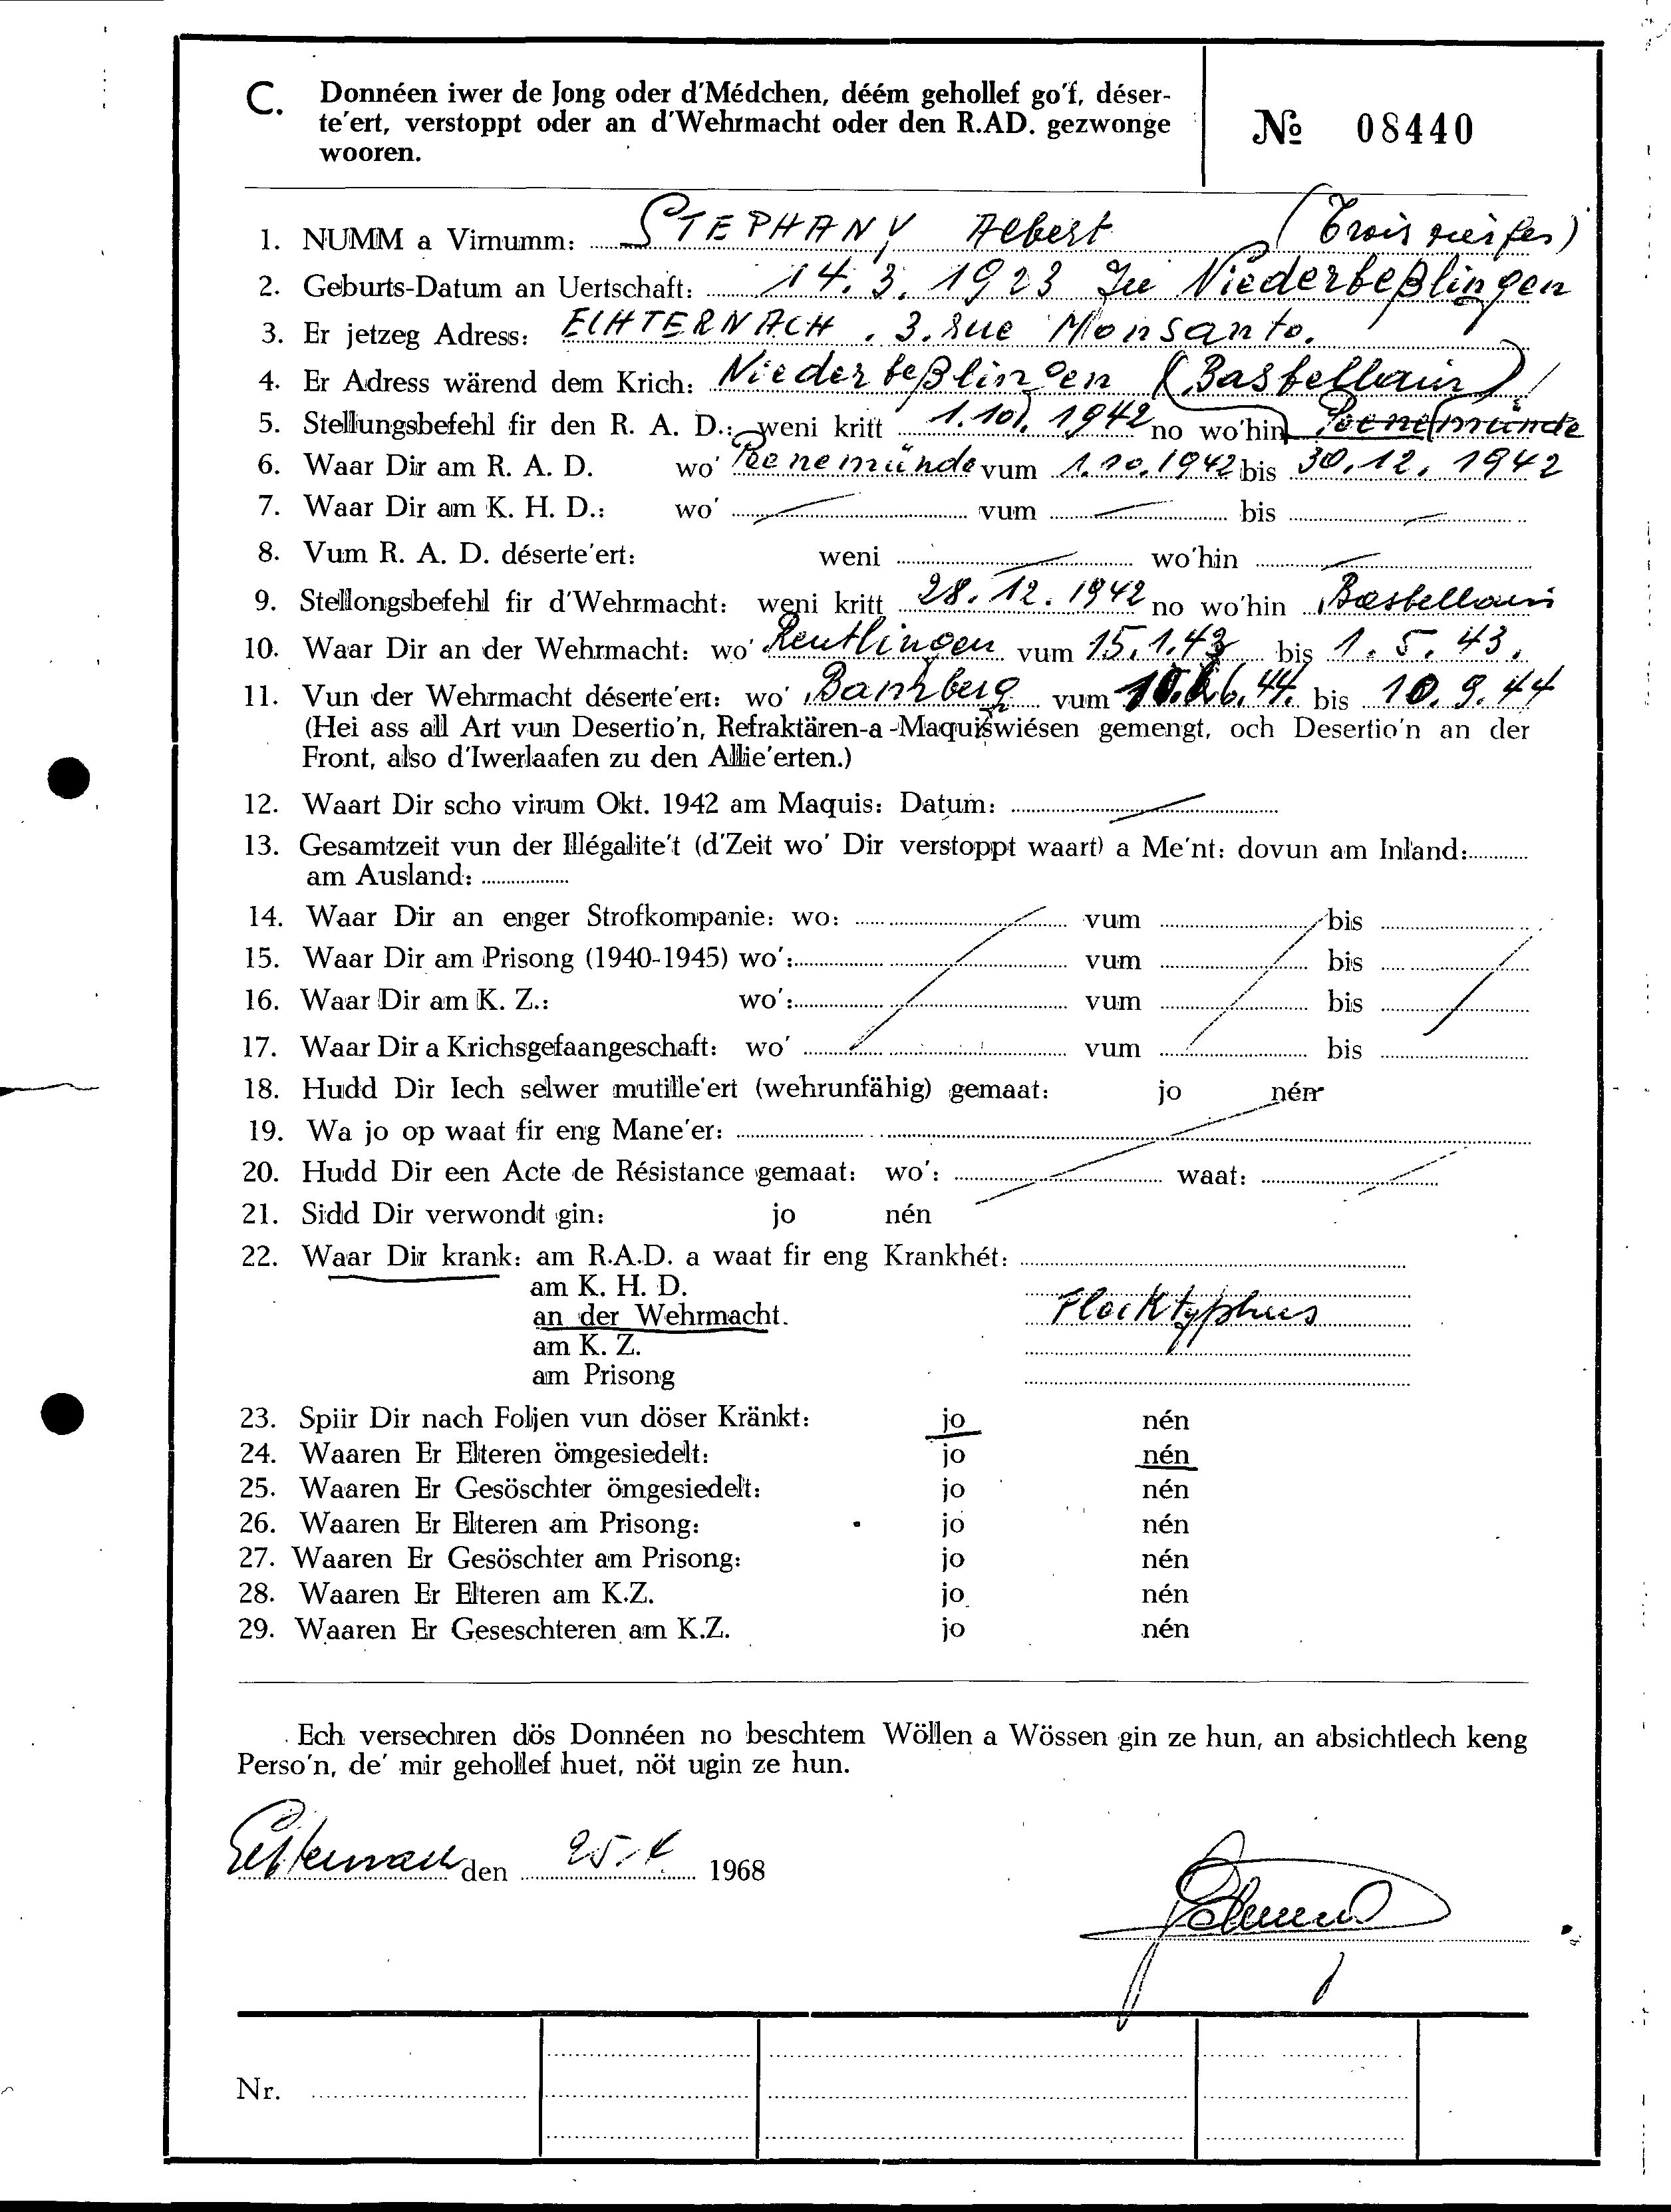 C. Donnéen iwer de Jong oder d'Médchen, déém gehollef go'f, déser-
te'ert, verstoppt oder an d'Wehrmacht oder den R.AD. gezwonge
wooren.
№ 08440
1. NUMM a Virnumm: STEPHANY Albert (Troisvierges)
2. Geburts-Datum an Uertschaft: 14. 3. 1923 In Niederbeßlingen
3. Er jetzeg Adress: ECHTERNACH, 3. rue Monsanto.
4. Er Adress wärend dem Krich: Niederbeßlingen (Basbellain)
5. Stellungsbefehl fir den R. A. D.: weni kritt 1. 10. 1942 no wo'hin Peenemünde
6. Waar Dir am R. A. D. wo' Peenemünde vum 1.10.1942 bis 30.12.1942
7. Waar Dir am K. H. D.: wo' vum bis
8. Vum R. A. D. déserte'ert: weni wo'hin
9. Stellongsbefehl fir d'Wehrmacht: weni kritt 28. 12. 1942 no wo'hin Basbellain
10. Waar Dir an der Wehrmacht: wo' Reutlingen vum 15.1.43 bis 1. 5. 43.
11. Vun der Wehrmacht déserte'ert: wo' Bamberg vum bis 10. 9. 44
(Hei ass all Art vun Desertio'n, Refraktären-a -Maquiswiésen gemengt, och Desertio'n an der
Front, also d'Iwerlaafen zu den Allie'erten.)
12. Waart Dir scho virum Okt. 1942 am Maquis: Datum:
13. Gesamtzeit vun der Illégalite't (d'Zeit wo' Dir verstoppt waart) a Me'nt: dovun am Inland:
am Ausland:
14. Waar Dir an enger Strofkompanie: wo: vum bis
15. Waar Dir am Prisong (1940-1945) wo': vum bis
16. Waar Dir am K. Z.: wo': vum bis
17. Waar Dir a Krichsgefaangeschaft: wo' vum bis
18. Hudd Dir Iech selwer mutille'ert (wehrunfähig) gemaat: jo nén
19. Wa jo op waat fir eng Mane'er:
20. Hudd Dir een Acte de Résistance gemaat: wo': waat:
21. Sidd Dir verwondt gin: jo nén
22. Waar Dir krank: am R.A.D. a waat fir eng Krankhét:
am K. H. D.
an der Wehrmacht. Flecktyphus
am K. Z.
am Prisong
23. Spiir Dir nach Foljen vun döser Kränkt: jo nén
24. Waaren Er Elteren ömgesiedelt: jo nén
25. Waaren Er Gesöschter ömgesiedelt: jo nén
26. Waaren Er Elteren am Prisong: jo nén
27. Waaren Er Gesöschter am Prisong: jo nén
28. Waaren Er Elteren am K.Z. jo nén
29. Waaren Er Geseschteren am K.Z. jo nén
Ech versechren dös Donnéen no beschtem Wöllen a Wössen gin ze hun, an absichtlech keng
Perso'n, de' mir gehollef huet, nöt ugin ze hun.
Echternach den 25. 4 1968
Nr.